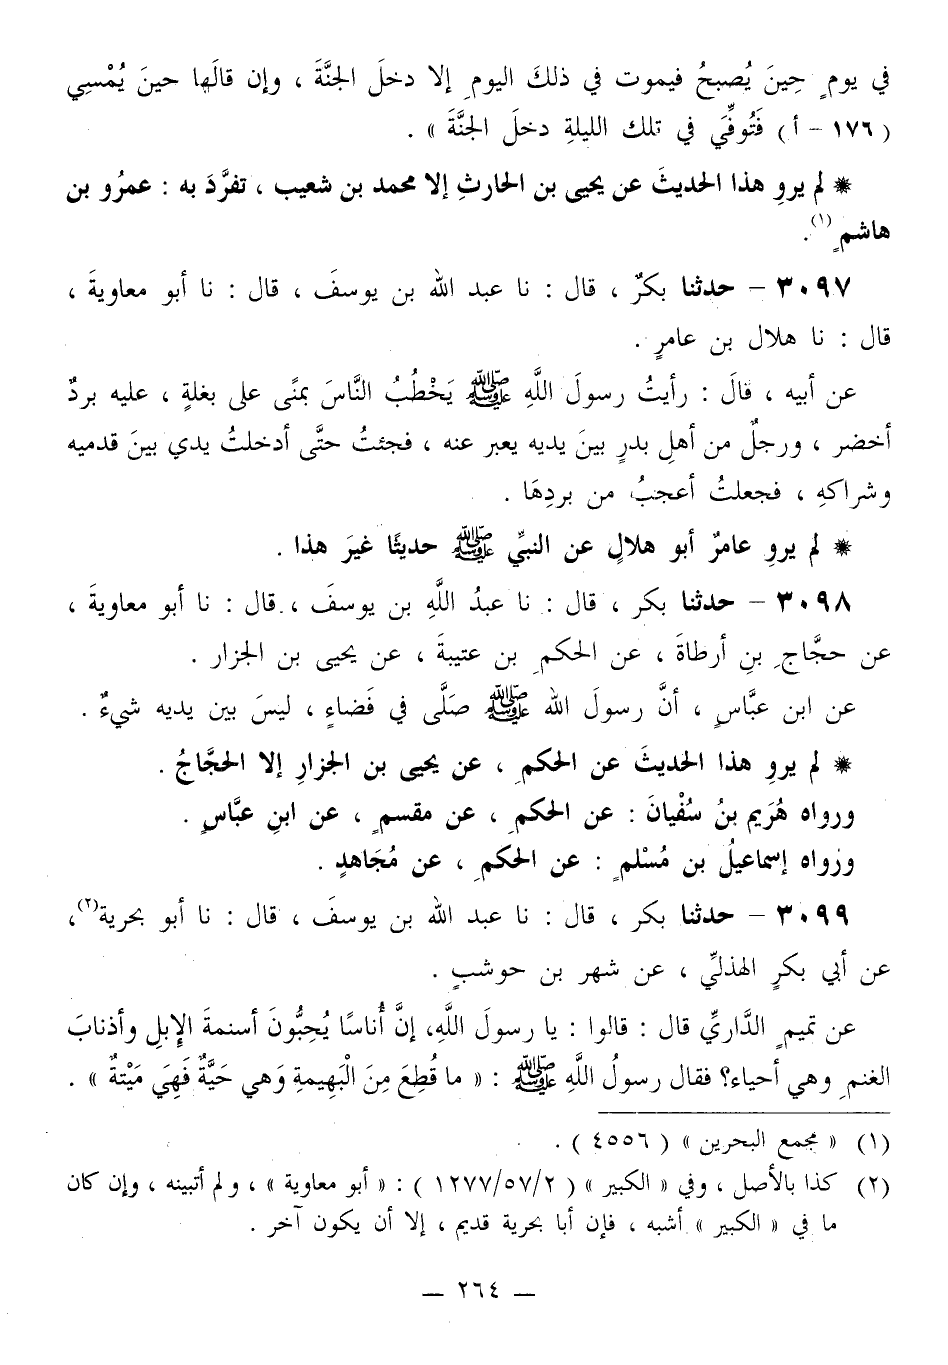 في يومٍ حِينَ يُصبحُ فيموت في ذلكَ اليومِ إلا دخلَ الجنَّةَ ، وإن قالَها حينَ يُمْسِي
( ١٧٦ - أ ) فَتُوفِّيَ في تلك الليلةِ دخلَ الجنَّةَ » .
* لم يروِ هذا الحديثَ عن يحيى بن الحارثِ إلا محمد بن شعيب ، تفرَّدَ به : عمرُو بن
هاشمٍ (١).
٣٠٩٧ - حدثنا بكرٌ ، قال : نا عبد الله بن يوسفَ ، قال : نا أبو معاويةَ ،
قال : نا هلال بن عامرٍ .
عن أبيه ، قالَ : رأيتُ رسولَ اللَّهِ ﷺ يَخْطُبُ النَّاسَ بمنًى على بغلةٍ ، عليه بردٌ
أخضر ، ورجلٌ من أهلِ بدرٍ بينَ يديه يعبر عنه ، فجئتُ حتَّى أدخلتُ يدي بينَ قدميه
وشراكهِ ، فجعلتُ أعجبُ من بردِهَا .
* لم يروِ عامرٌ أبو هلالٍ عن النبيِّ ﷺ حديثًا غيرَ هذا .
٣٠٩٨ - حدثنا بكر ، قال : نا عبدُ اللَّهِ بن يوسفَ ، قال : نا أبو معاويةَ ،
عن حجَّاجِ بنِ أرطاةَ ، عن الحكمِ بن عتيبةَ ، عن يحيى بن الجزار .
عن ابن عبَّاسٍ ، أنَّ رسولَ الله ﷺ صَلَّى في فَضاءٍ ، ليسَ بين يديه شيءٌ .
* لم يروِ هذا الحديثَ عن الحكمِ ، عن يحيى بن الجزارِ إلا الحجَّاجُ .
ورواه هُرَيم بنُ سُفْيانَ : عن الحكمِ ، عن مقسمٍ ، عن ابنِ عبَّاسٍ .
ورواه إسماعيلُ بن مُسْلمٍ : عن الحكمِ ، عن مُجَاهدٍ .
٣٠٩٩ - حدثنا بكر ، قال : نا عبد الله بن يوسفَ ، قال : نا أبو بحرية(٢)،
عن أبي بكرٍ الهذليِّ ، عن شهر بن حوشبٍ .
عن تميمٍ الدَّاريِّ قال : قالوا : يا رسولَ اللَّهِ، إنَّ أُناسًا يُحِبُّونَ أسنمةَ الإبلِ وأذنابَ
الغنمِ وهي أحياء؟ فقال رسولُ اللَّهِ ﷺ : « ما قُطِعَ مِنَ الْبَهِيمةِ وَهي حَيَّةٌ فَهِيَ مَيْتةٌ » .
(١) « مجمع البحرين » ( ٤٥٥٦ ) .
(٢) كذا بالأصل ، وفي « الكبير » ( ١٢٧٧/٥٧/٢ ) : « أبو معاوية » ، ولم أتبينه ، وإن كان
ما في « الكبير » أشبه ، فإن أبا بحرية قديم ، إلا أن يكون آخر .
— ٢٦٤ —